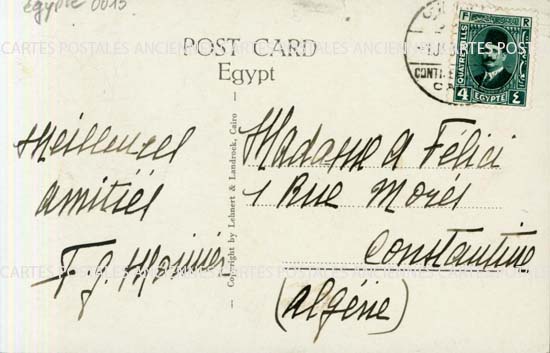 Egypte 0015
CARTES POSTALES ANCIENNES CARTES POSTALES ANCIENNES CARTES POSTALES
POST CARD
Egypt
F R
QUATRE MILLES
4 EGYPTE ٤
CONTR
Meilleures
amitiés
F. J.
Copyright by Lehnert & Landrock, Cairo
Madame A Félici
1 Rue Morès
Constantine
CARTES POSTALES ANCIENNES CARTES POSTALES ANCIENNES CARTES POSTALES
(Algérie)